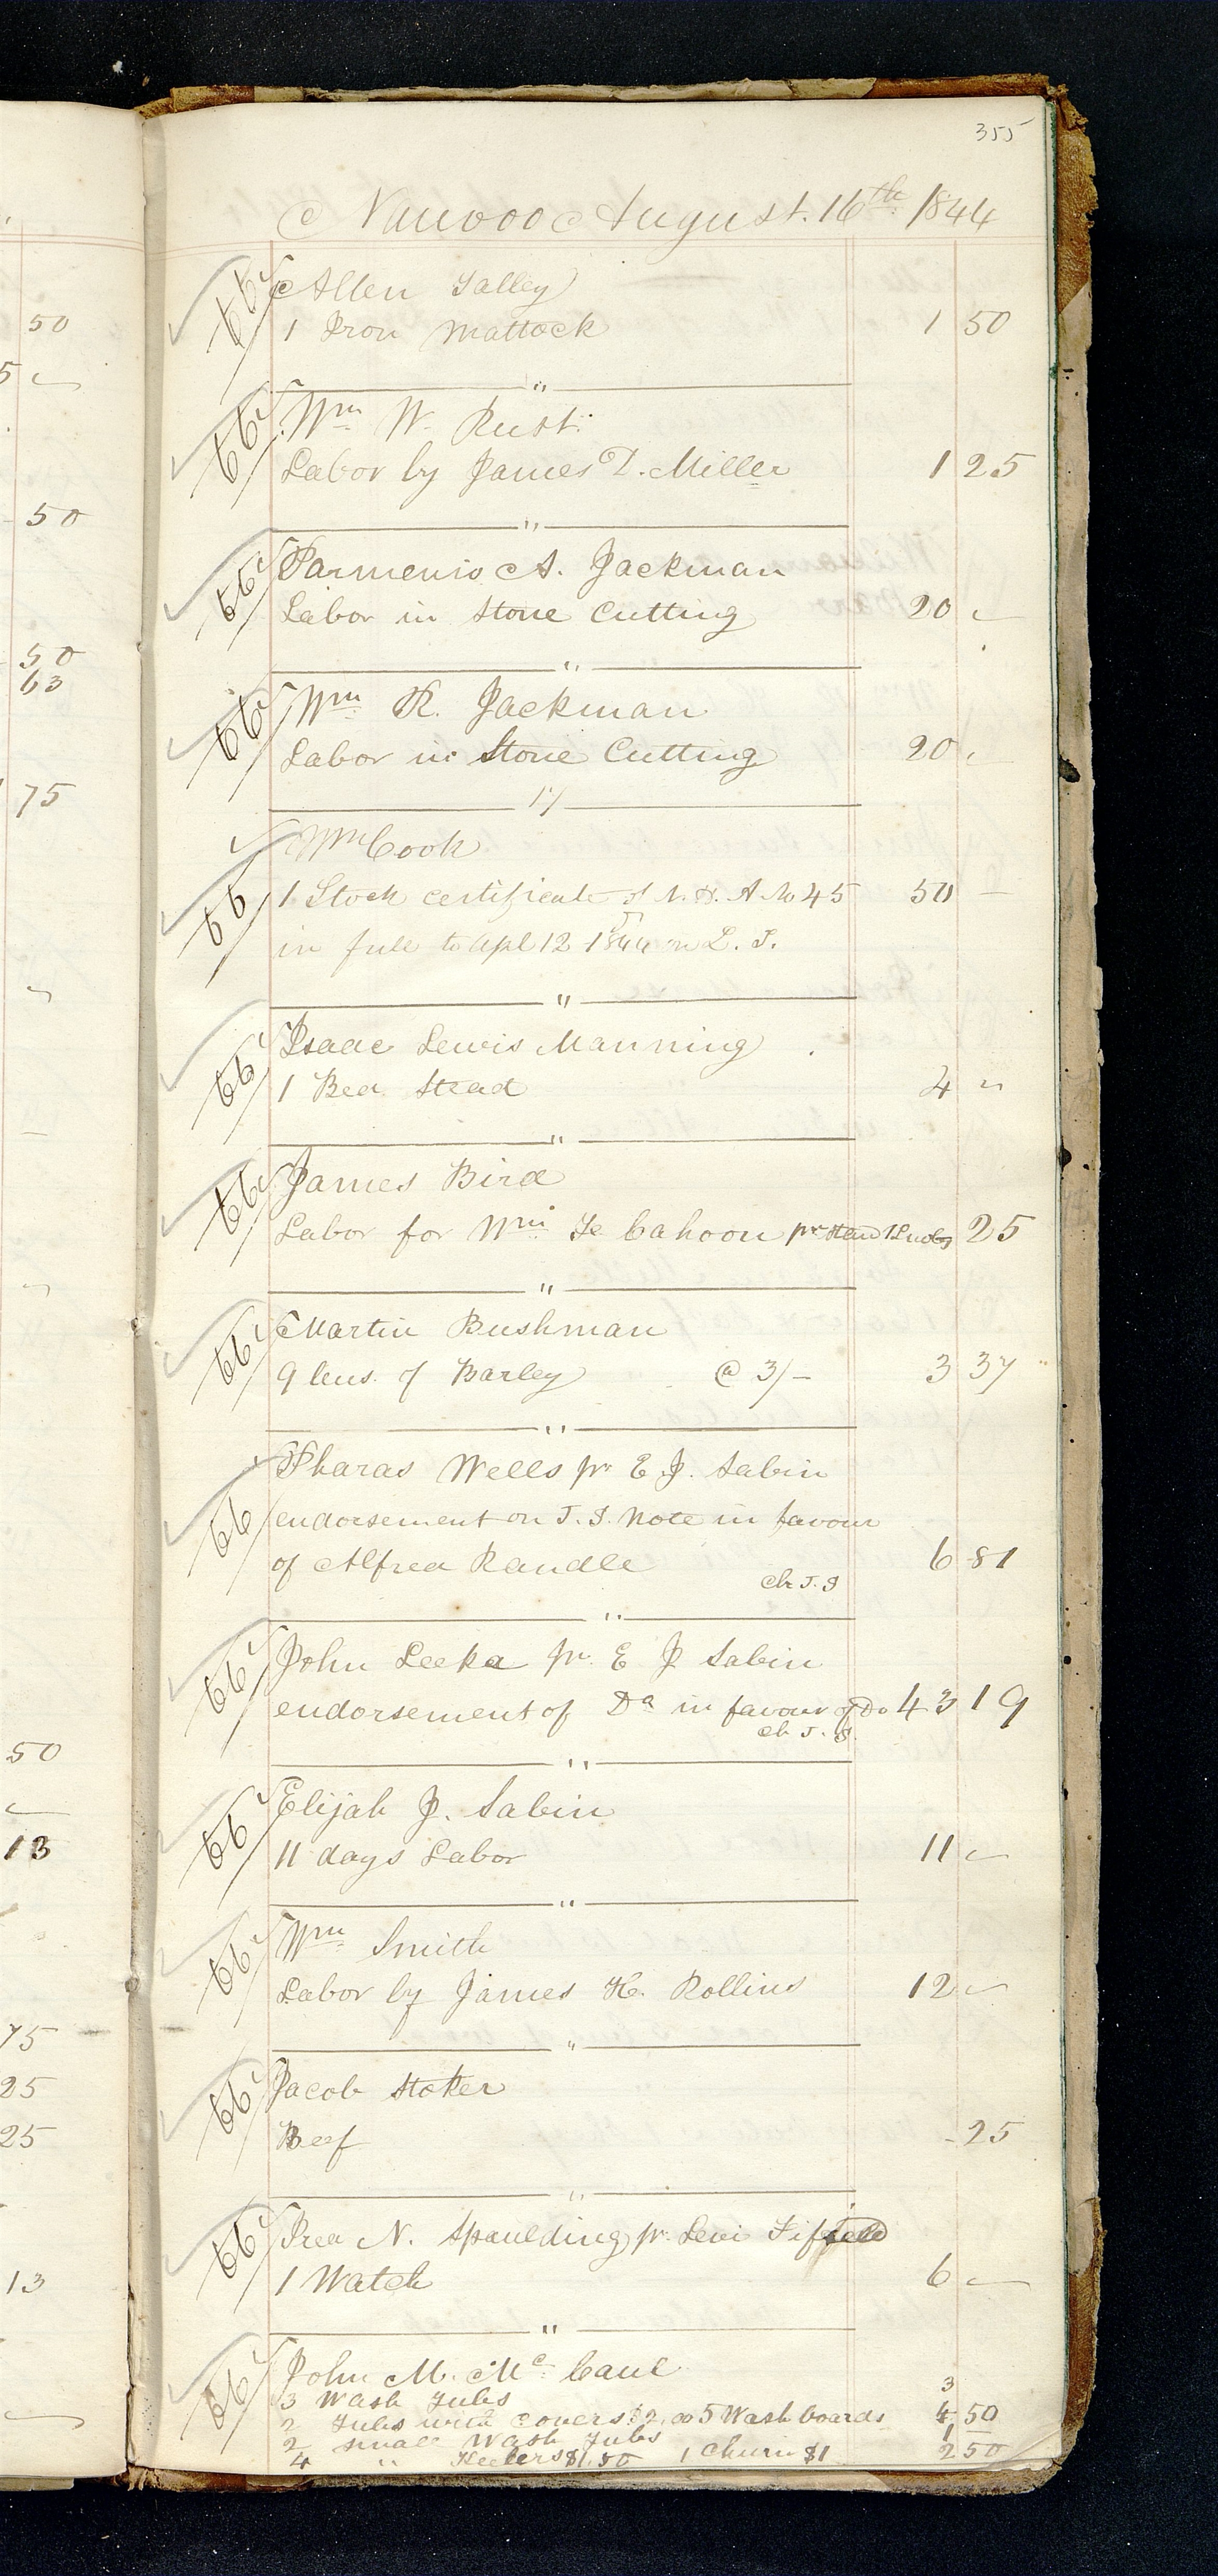 355
Nauvoo August. 16th 1844
66 Allen Talley
1 Iron Mattock 1 50
"
66 Wm W. Rust.
Labor by James D. Miller 1 25
"
66 Parmenio A. Jackman
Labor in Stone Cutting 20 "
"
66 Wm R. Jackman
Labor in Stone Cutting 20 "
17
66 Wm Cook
1 Stock certificate of N. H. A. No 45 50 —
in full to Apl 12 1844 on L. T.
"
66 Isaac Lewis Manning
1 Bed Stead 4 "
"
66 James Bird
Labor for Wm F Cahoon pr Hand 25
"
66 Martin Bushman
9 bus. of Barley @ 3/- 3 37
"
66 Pharas Wells pr E J. Sabin
endorsement on T. I. Note in favour
of Alfred Randle 6 81
Ch T. I
"
66 John Leeka pr. E J Sabin
endorsement of Do in favour of Do 43 19
Ch T. I.
"
66 Elijah J. Sabin
11 days Labor 11 "
"
66 Wm Smith
Labor by James H. Rollins 12 "
"
66 Jacob Stoker
Beef - 25
"
66 Ired N. Spaulding pr. Levi Fifield
1 Watch 6 "
"
66 John M. Mc Caul
3 Wash Tubs 3
2 Tubs with covers $2.00 5 Wash boards 4 50
2 small Wash Tubs 1
4 " Keelers $1.50 1 Churn $1 2 50
50
5 "
50
50
63
75
"
"
50
"
13
75
25
25
13